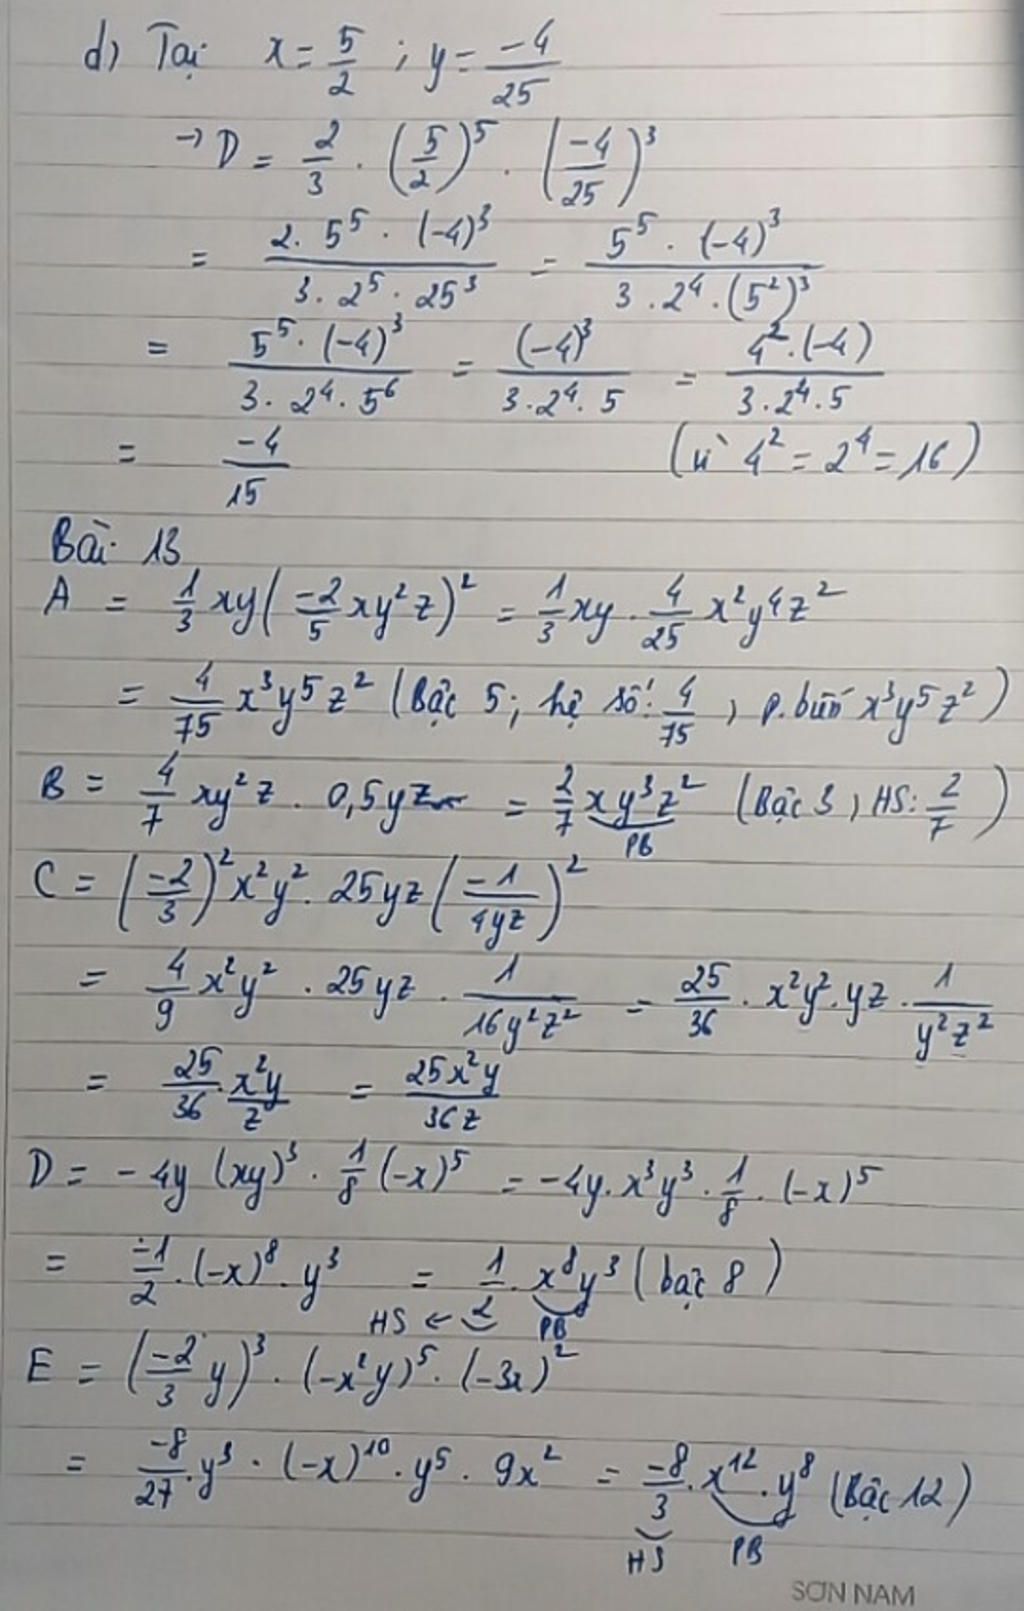 d) Tại x = 5/2 ; y = -4/25
→ D = 2/3 . (5/2)^5 . (-4/25)^3
= 2. 5^5 . (-4)^3 / 3 . 2^5 . 25^3 = 5^5 . (-4)^3 / 3 . 2^4 . (5^2)^3
= 5^5 . (-4)^3 / 3 . 2^4 . 5^6 = (-4)^3 / 3 . 2^4 . 5 = 4^2 . (-4) / 3 . 2^4 . 5
= -4/15 (vì 4^2 = 2^4 = 16)
Bài 13
A = 1/3 xy(-2/5 xy^2 z)^2 = 1/3 xy . 4/25 x^2y^4z^2
= 4/75 x^3y^5z^2 (Bậc 5; hệ số: 4/75, p.biến x^3y^5z^2)
B = 4/7 xy^2z . 0,5yz = 2/7 xy^3z^2 (Bậc 3, HS: 2/7)
PB
C = (-2/3)^2 x^2y^2 . 25yz (-1/4yz)^2
= 4/9 x^2y^2 . 25yz . 1/16y^2z^2 = 25/36 . x^2y^2.yz . 1/y^2z^2
= 25/36 . x^2y/z = 25x^2y/36z
D = -4y (xy)^3 . 1/8 (-x)^5 = -4y.x^3y^3 . 1/8 . (-x)^5
= -1/2 . (-x)^8 . y^3 = 1/2 . x^8y^3 (bậc 8)
HS ← PB
E = (-2/3 y)^3 . (-x^2y)^5 . (-3x)^2
= -8/27 . y^3 . (-x)^10 . y^5 . 9x^2 = -8/3 . x^12 . y^8 (Bậc 12)
HS PB
SƠN NAM